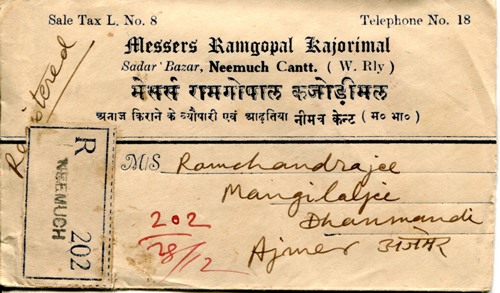 Sale Tax L. No. 8
Telephone No. 18
Messers Ramgopal Kajorimal
Sadar Bazar, Neemuch Cantt. ( W. Rly )
मेसर्स रामगोपाल कजोड़ीमल
अनाज किराने के व्यौपारी एवं आढ़तिया नीमच केन्ट ( म० भा० )
Registered
R
NEEMUCH
202
M/S Ramchandrajee
Mangilaljee
Dhanmandi
Ajmer अजमेर
202
28/12